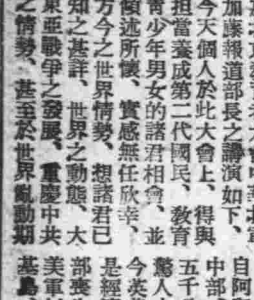 加藤報道部長之講演如下、
今天個人於此大會上、得與
担當養成第二代國民、敎育
靑少年男女的諸君相會、並
傾述所懷、實感無任欣幸、
方今之世界情勢、想諸君已
知之甚詳、世界之動態、大
東亞戰爭之發展、重慶中共
之情勢、甚至於世界亂動期
自阿
中部
五千
驚人
今英
是經
部喪
美軍
基島